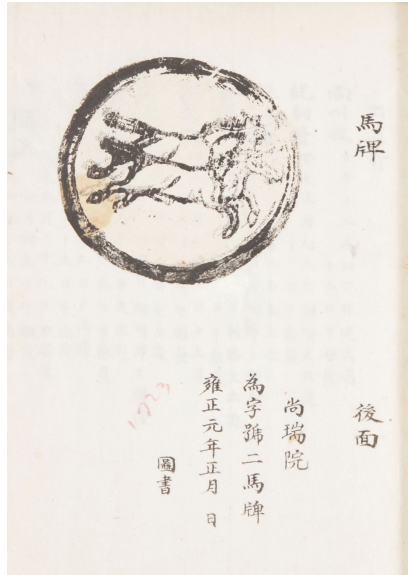 馬牌
後面
尚瑞院
為字號二馬牌
雍正元年正月 日
圖書
1723